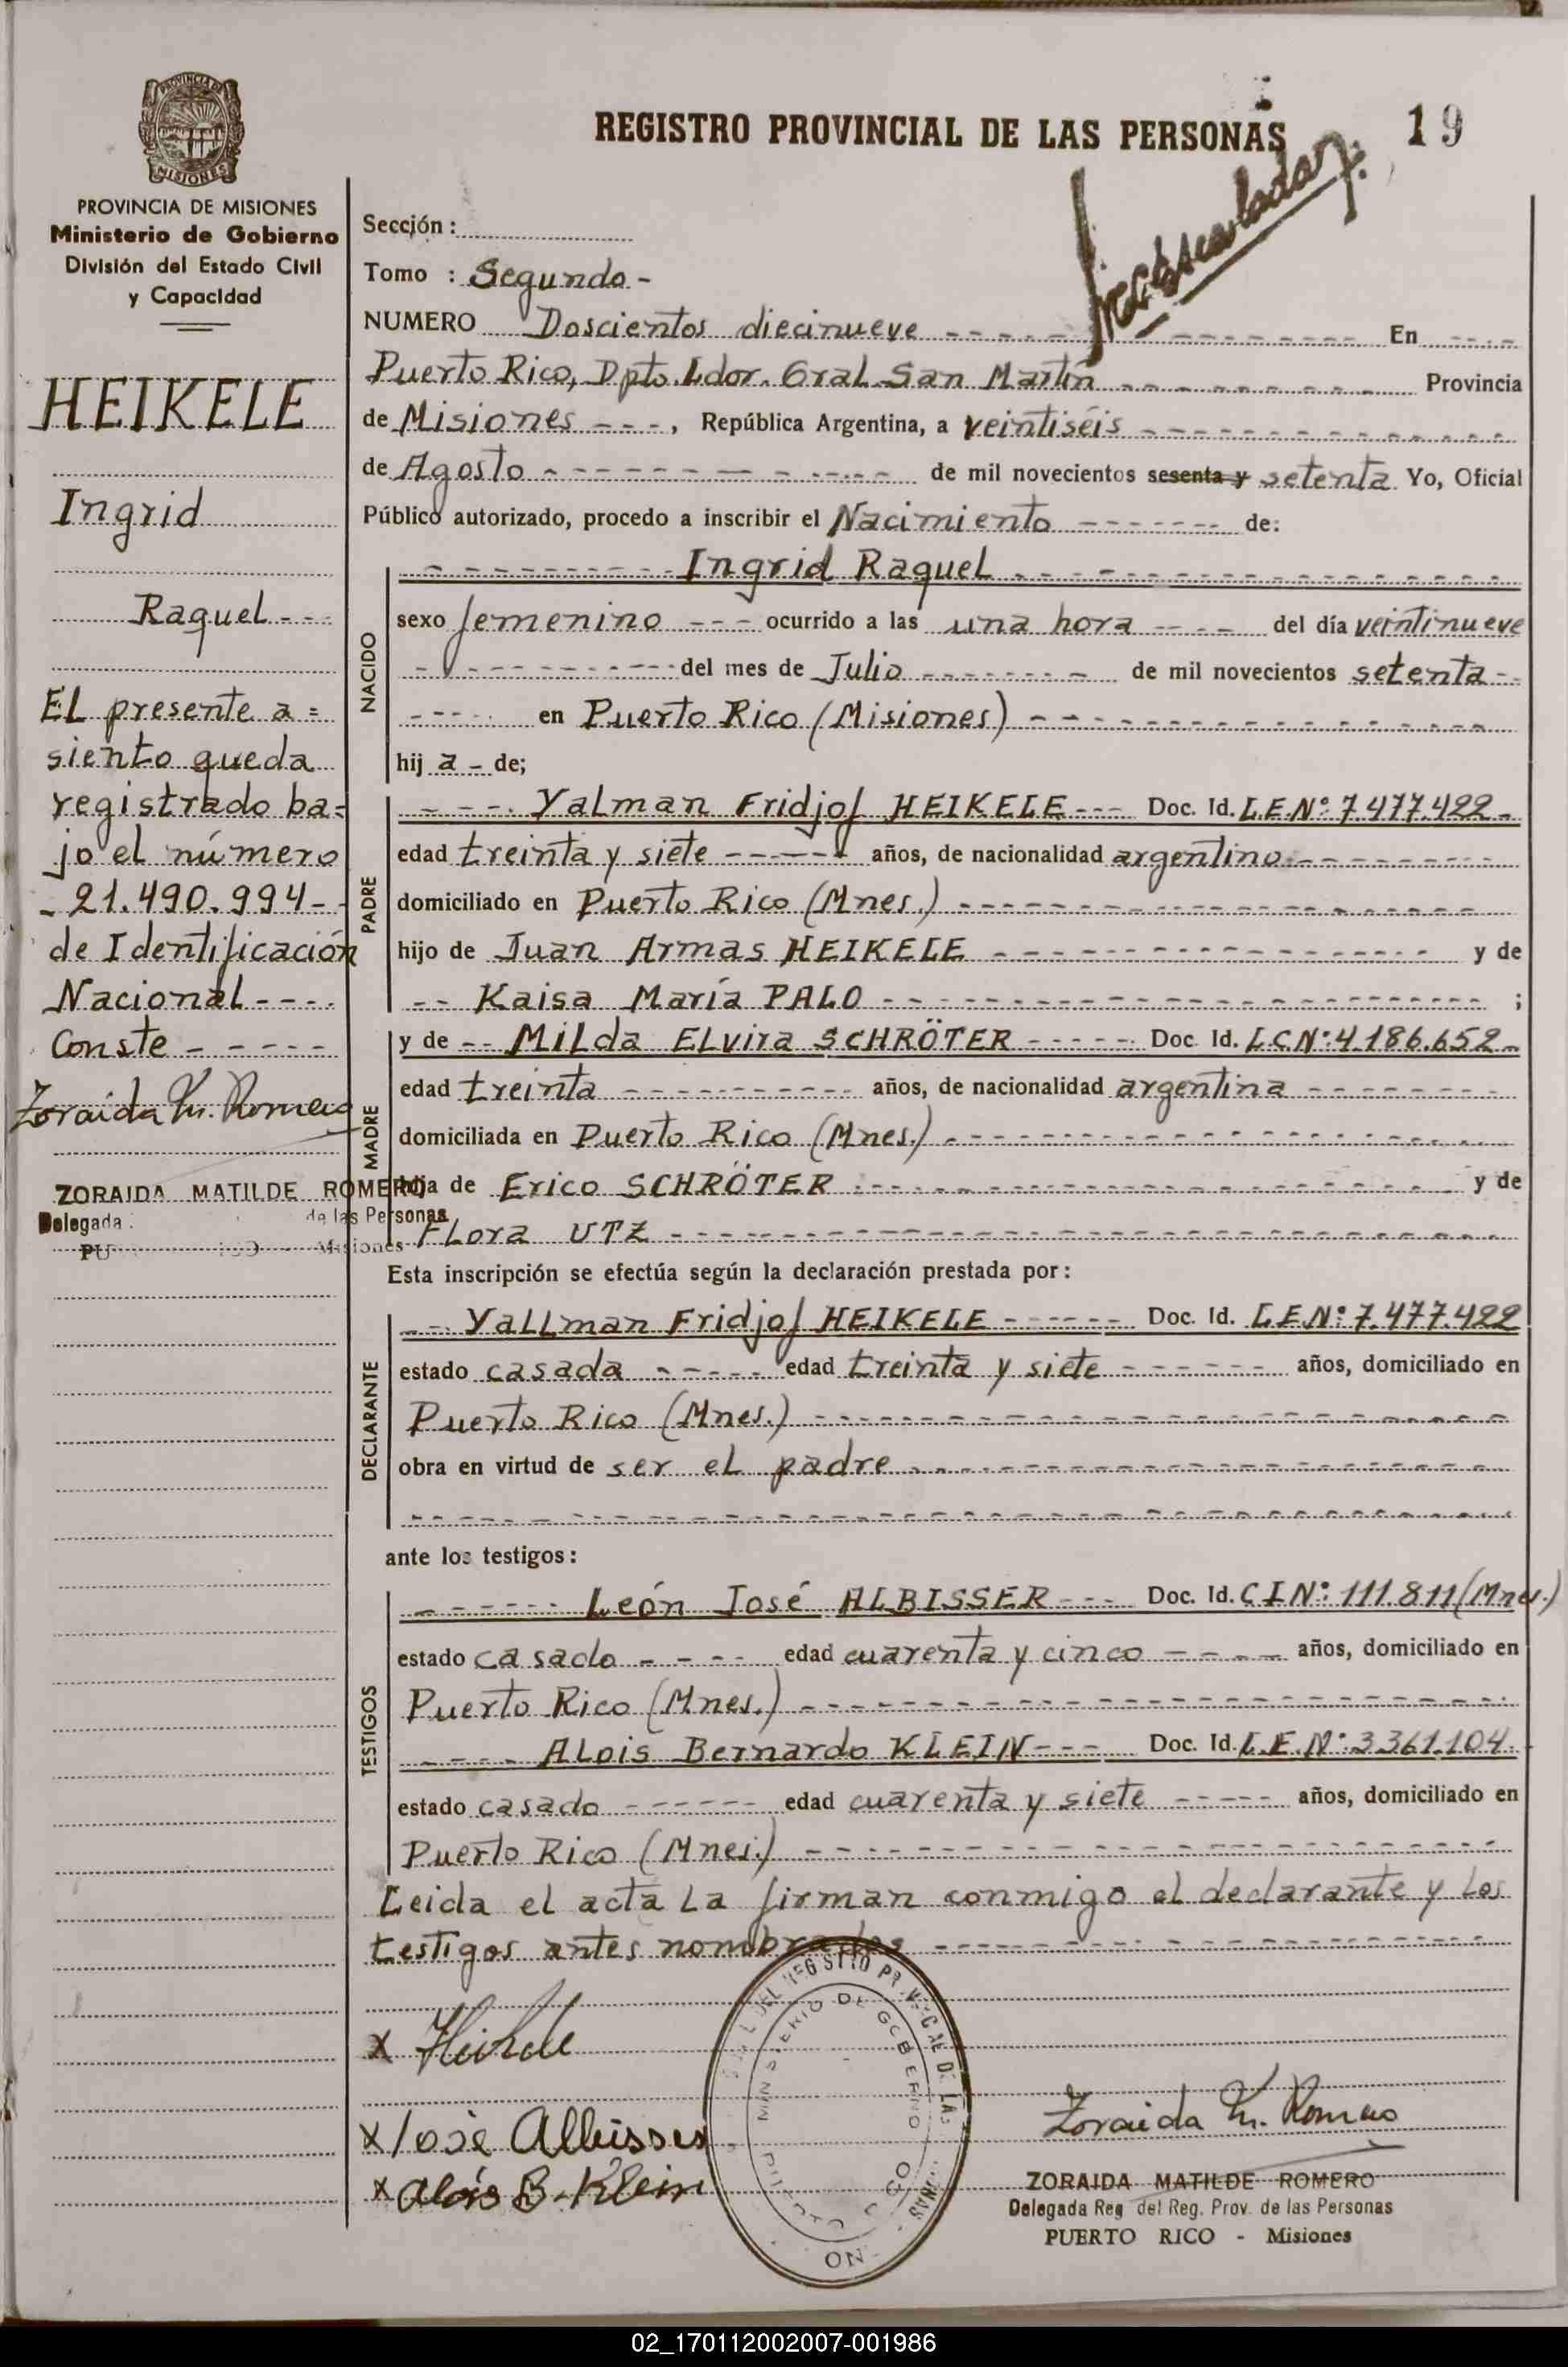 REGISTRO PROVINCIAL DE LAS PERSONAS
19
PROVINCIA DE MISIONES
MISIONES
PROVINCIA DE MISIONES
Ministerio de Gobierno
División del Estado Civil
y Capacidad
HEIKELE
Ingrid
Raquel ---
El presente a=
siento queda
registrado ba=
jo el número
- 21.490.994 -
de Identificación
Nacional ----
Conste -----
Zoraida M. Romero
ZORAIDA MATILDE ROMERO
Delegada de las Personas
PU Misiones
Sección :
Tomo : Segundo -
NUMERO Doscientos diecinueve ---- En ----
Puerto Rico, Dpto. Ldor. Gral. San Martín ---- Provincia
de Misiones ---, República Argentina, a veintiséis ----
de Agosto ---- de mil novecientos sesenta y setenta Yo, Oficial
Público autorizado, procedo a inscribir el Nacimiento ---- de:
NACIDO
---- Ingrid Raquel ----
sexo femenino --- ocurrido a las una hora ---- del día veintinueve
---- del mes de Julio ---- de mil novecientos setenta --
---- en Puerto Rico (Misiones) ----
hij a - de;
PADRE
---- Yalman Fridjof HEIKELE --- Doc. Id. L.E.Nº: 7.477.422 -
edad treinta y siete ---- años, de nacionalidad argentino ----
domiciliado en Puerto Rico (Mnes.) ----
hijo de Juan Armas HEIKELE ---- y de
-- Kaisa María PALO ---- ;
MADRE
y de -- Milda Elvira SCHRÖTER ---- Doc. Id. L.C.Nº: 4.186.652 -
edad treinta ---- años, de nacionalidad argentina ----
domiciliada en Puerto Rico (Mnes.) ----
hija de Erico SCHRÖTER ---- y de
Flora UTZ ----
Esta inscripción se efectúa según la declaración prestada por:
DECLARANTE
--- Yallman Fridjof HEIKELE ---- Doc. Id. L.E.Nº: 7.477.422
estado casada ---- edad treinta y siete ---- años, domiciliado en
Puerto Rico (Mnes.) ----
obra en virtud de ser el padre ----
----
ante los testigos:
TESTIGOS
---- León José ALBISSER --- Doc. Id. C.I.Nº: 111.811 (Mnes.)
estado casado ---- edad cuarenta y cinco ---- años, domiciliado en
Puerto Rico (Mnes.) ----
---- Alois Bernardo KLEIN --- Doc. Id. L.E.Nº: 3.361.104.
estado casado ---- edad cuarenta y siete ---- años, domiciliado en
Puerto Rico (Mnes.) ----
Leida el acta la firman conmigo el declarante y los
testigos antes nombrados ----
x Heikele
x José Albisser
x Alois B. Klein
Zoraida M. Romero
ZORAIDA MATILDE ROMERO
Delegada Reg del Reg. Prov. de las Personas
PUERTO RICO - Misiones
02_170112002007-001986